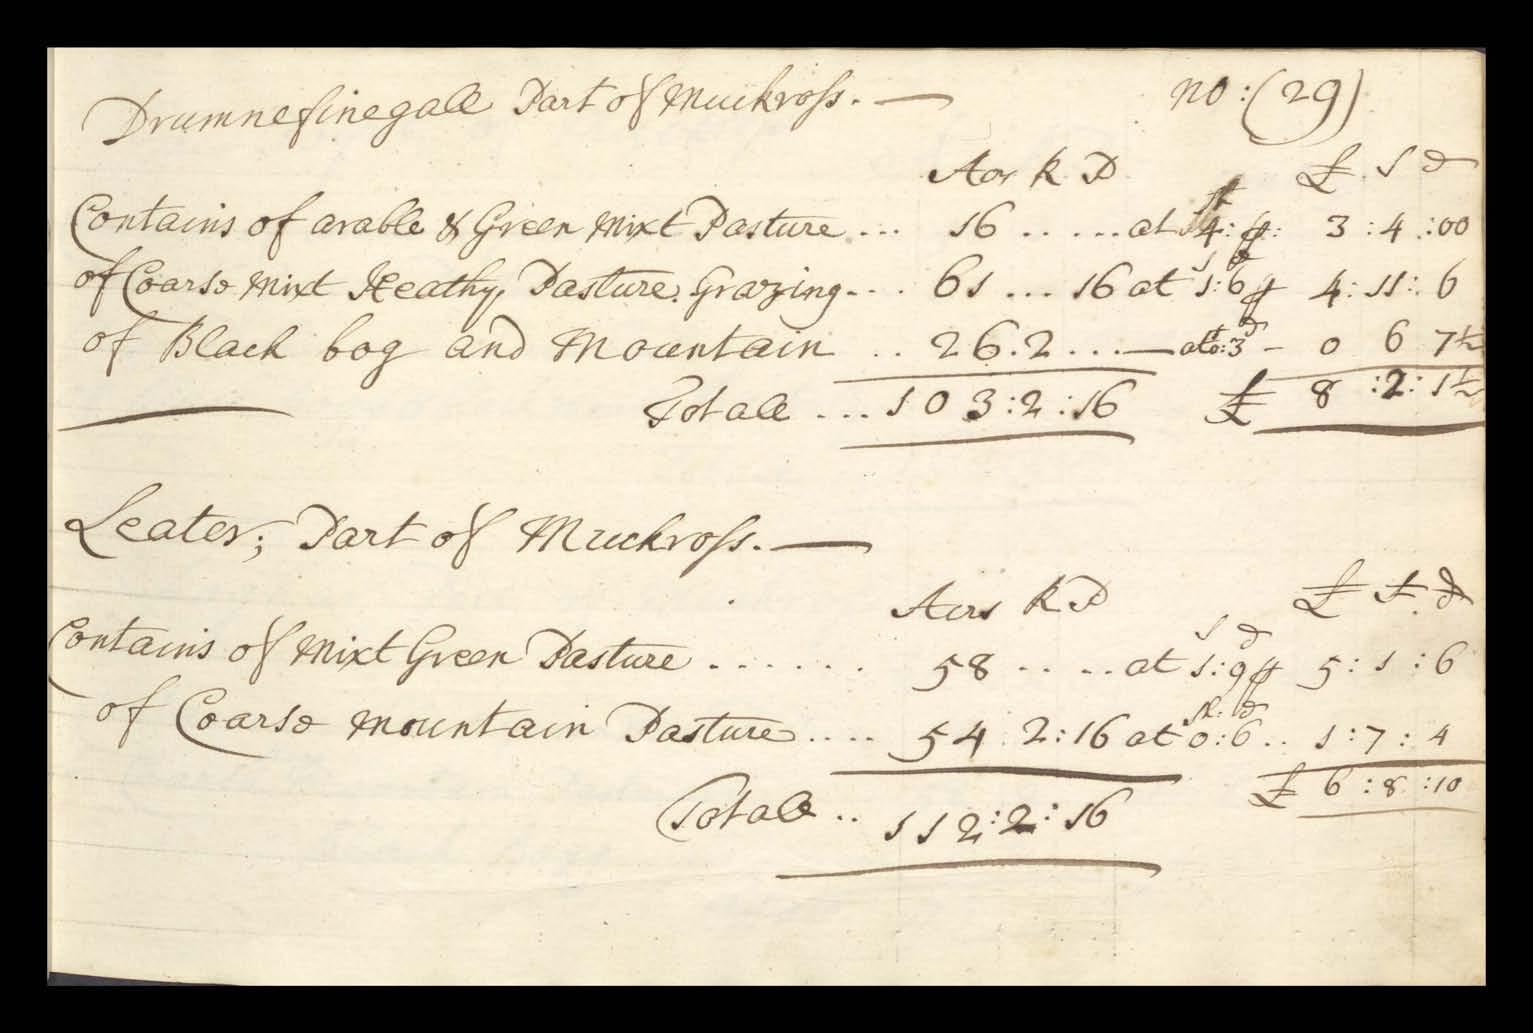 Drumnefinegall Part of Muckross. — no: (29)
Acrs R P £ S d
Contains of arable & Green Mixt Pasture ... 16 .. ... at 4: p: 3 : 4 : 00
of Coarse Mixt Heathy, Pasture Grazing... 61 ... 16 at 1:6 p 4: 11: 6
of Black bog and Mountain .. 26.2 ... — at 0:3 - 0 6 7½
Totall ... 103:2:16 £ 8 :2: 1½
Leater; Part of Muckross. —
Acrs R P £ S d
Contains of Mixt Green Pasture ....... 58 .. .. at 1:9 p 5: 1 : 6
of Coarse Mountain Pasture .... 54 2:16 at 0:6 .. 1:7: 4
Totall .. 112:2:16 £ 6 : 8 :10